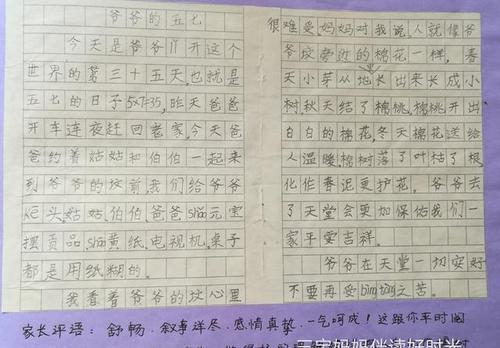 爷爷的五七
今天是爷爷离开这个
世界的第三十五天,也就是
五七的日子5×7=35,昨天爸爸
开车连夜赶回老家,今天爸
爸约着姑姑和伯伯一起来
到爷爷的坟前,我们给爷爷
ke头,姑姑、伯伯、爸爸shāo元宝
摆贡品shāo黄纸,电视机、桌子
都是用纸糊的。
我看着爷爷的坟心里
很难受,妈妈对我说,人就像爷
爷坟旁边的棉花一样,春
天小芽从地里长出来长成小
树,秋天结了棉桃,棉桃开出
白白的棉花,冬天棉花送给
人温暖,棉树落了叶枯了根
化作春泥更护花。爷爷去
了天堂会更加保佑我们一
家平安吉祥。
爷爷在天堂一切安好
不要再受bìngtòng之苦。
家长评语:舒畅.叙事详尽.感情真挚.一气呵成!这跟你平时阅
三宝妈妈伴读好时光